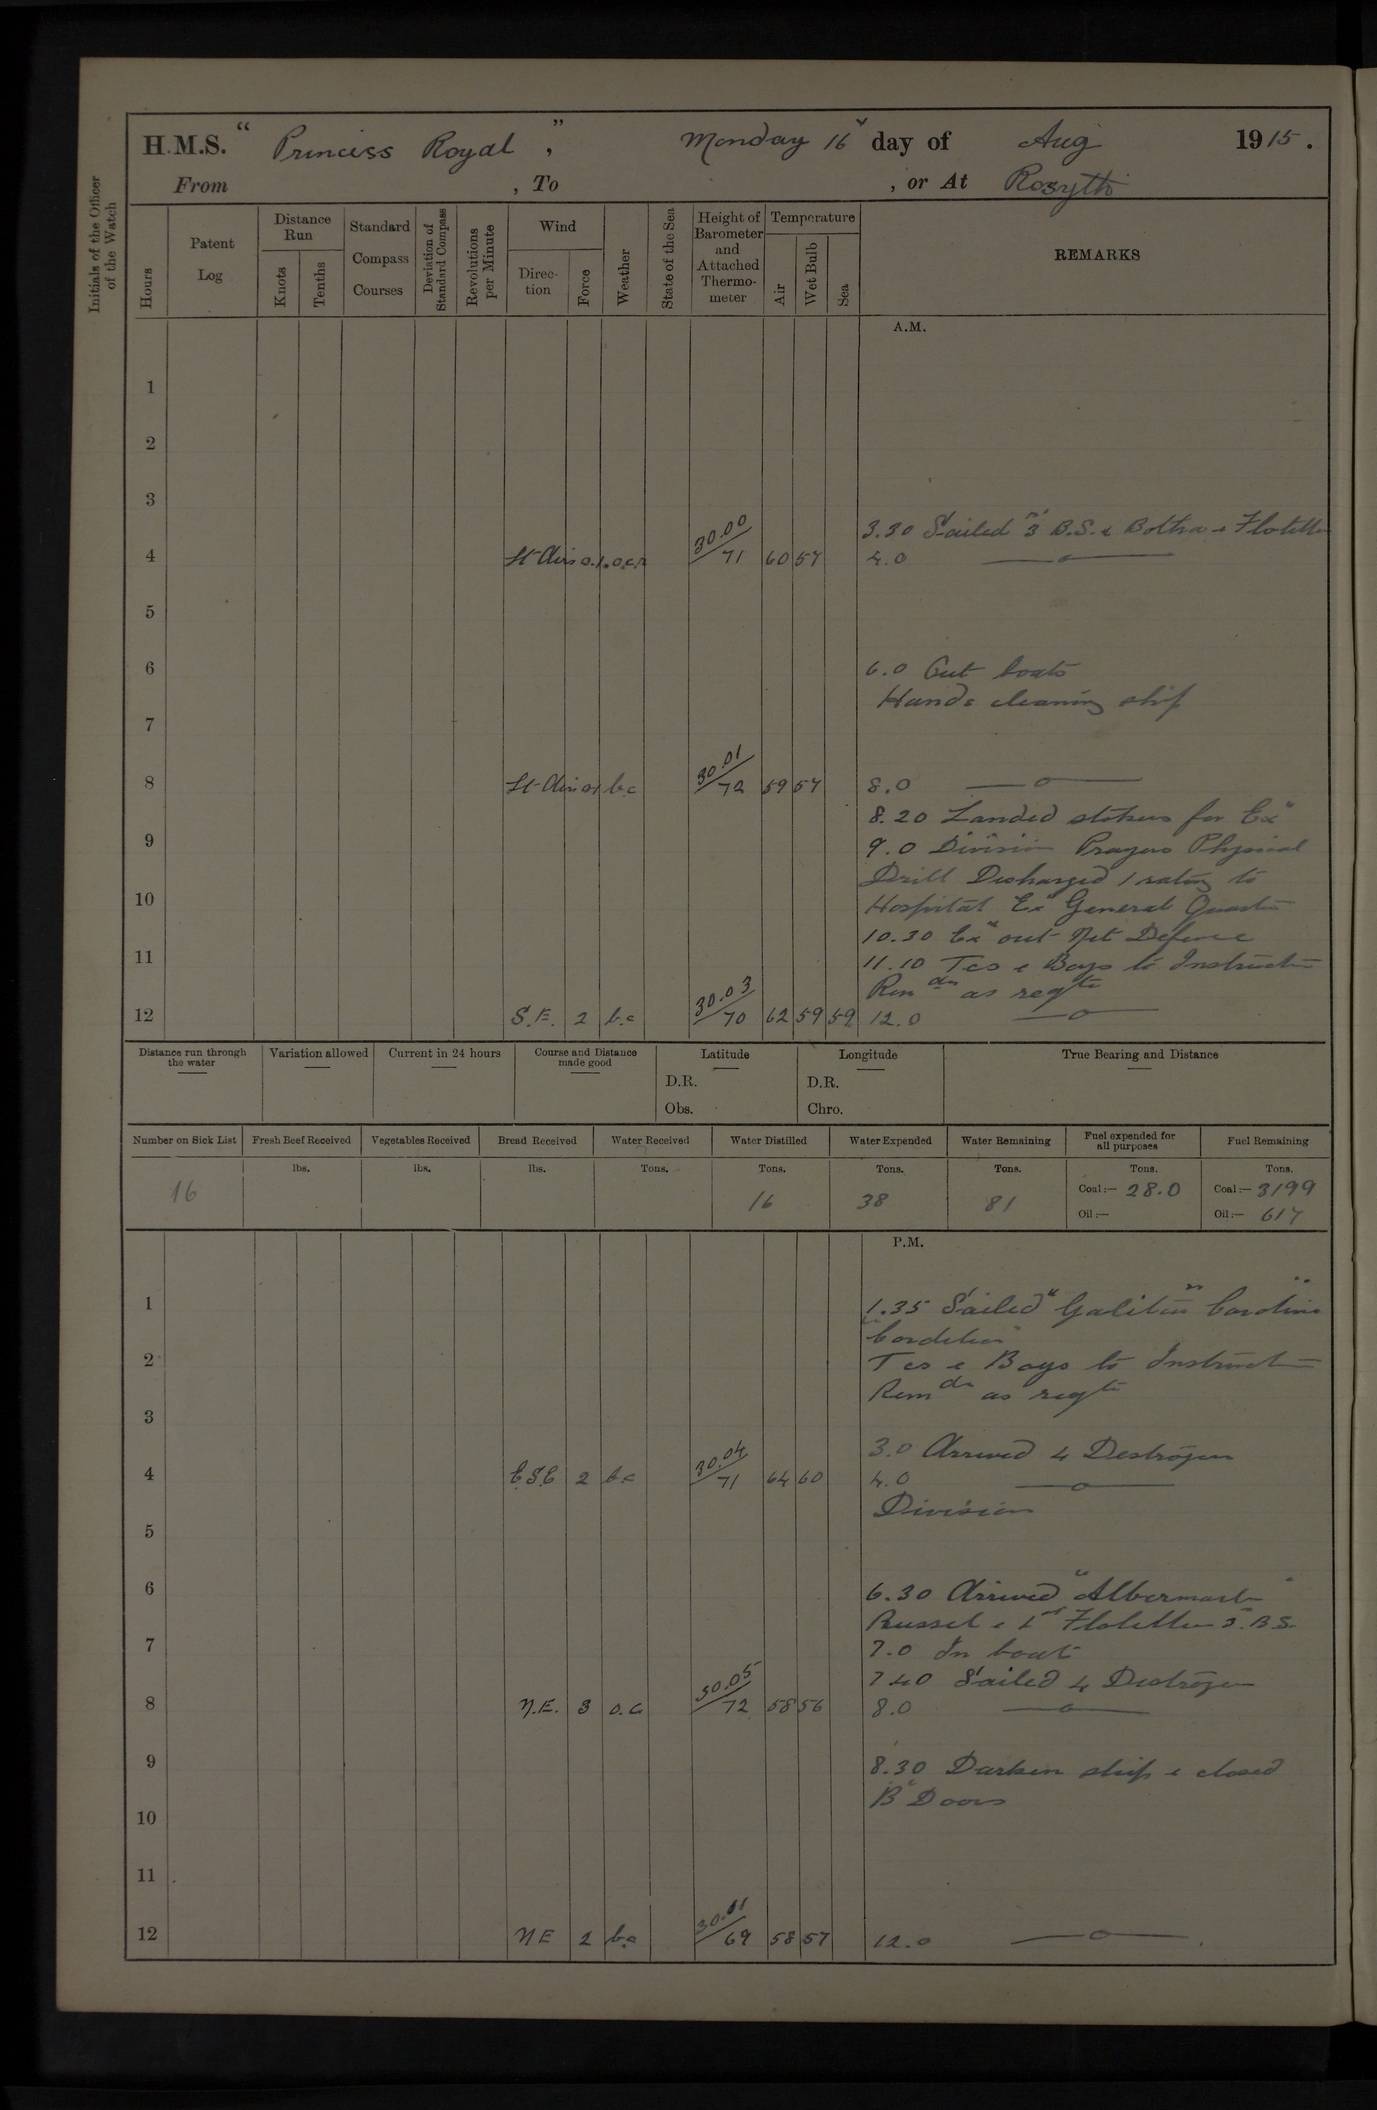 H.M.S. "Princess Royal", Monday 16th day of Aug 1915.
From , To , or At Rosyth
Initials of the Officer of the Watch
Hours
Patent Log
Distance Run
Knots
Tenths
Standard Compass Courses
Deviation of Standard Compass
Revolutions per Minute
Wind
Direction
Force
Weather
State of the Sea
Height of Barometer and Attached Thermometer
Temperature
Air
Wet Bulb
Sea
REMARKS
A.M.
1
2
3
3.30 Sailed 3rd B.S. & Flotilla
4 Lt Airs 0.1. o.c.r 30.00/71 60 57 4.0 —o—
5
6 6.0 Out boats
Hands cleaning ship
7
8 Lt Airs 01 bc 30.01/72 59 57 8.0 —o—
8.20 Landed stokers for Ex"
9 9.0 Division Prayers Physical
Drill Discharged 1 rating to
10 Hospital Ex" General Quarters
10.30 Ex" out Net Defence
11 11.10 Tcs & Boys to Instruction
Rem dr as reqte
12 S.E. 2 b.c 30.03/70 62 59 59 12.0 —o—
Distance run through the water
Variation allowed
Current in 24 hours
Course and Distance made good
Latitude
D.R.
Obs.
Longitude
D.R.
Chro.
True Bearing and Distance
Number on Sick List
Fresh Beef Received
Vegetables Received
Bread Received
Water Received
Water Distilled
Water Expended
Water Remaining
Fuel expended for all purposes
Fuel Remaining
lbs. lbs. lbs. Tons. Tons. Tons. Tons. Tons. Tons.
16 16 38 81 Coal:— 28.0 Coal:— 3199
Oil:— Oil:— 617
P.M.
1 1.35 Sailed "Galatea" "Caroline"
"Cordelia"
2 Tcs & Boys to Instruction
Rem dr as reqte
3
3.0 Arrived 4 Destroyers
4 E.S.E 2 b.c 30.04/71 64 60 4.0 —o—
Division
5
6 6.30 Arrived "Albermarle"
Russel & 1st Flotilla 3rd B.S.
7 7.0 In boats
7.40 Sailed 4 Destroyers
8 N.E. 3 o.c 30.05/72 58 56 8.0 —o—
9 8.30 Darken ship & closed
"B" Doors
10
11
12 NE 2 b.c 30.11/69 58 57 12.0 —o—